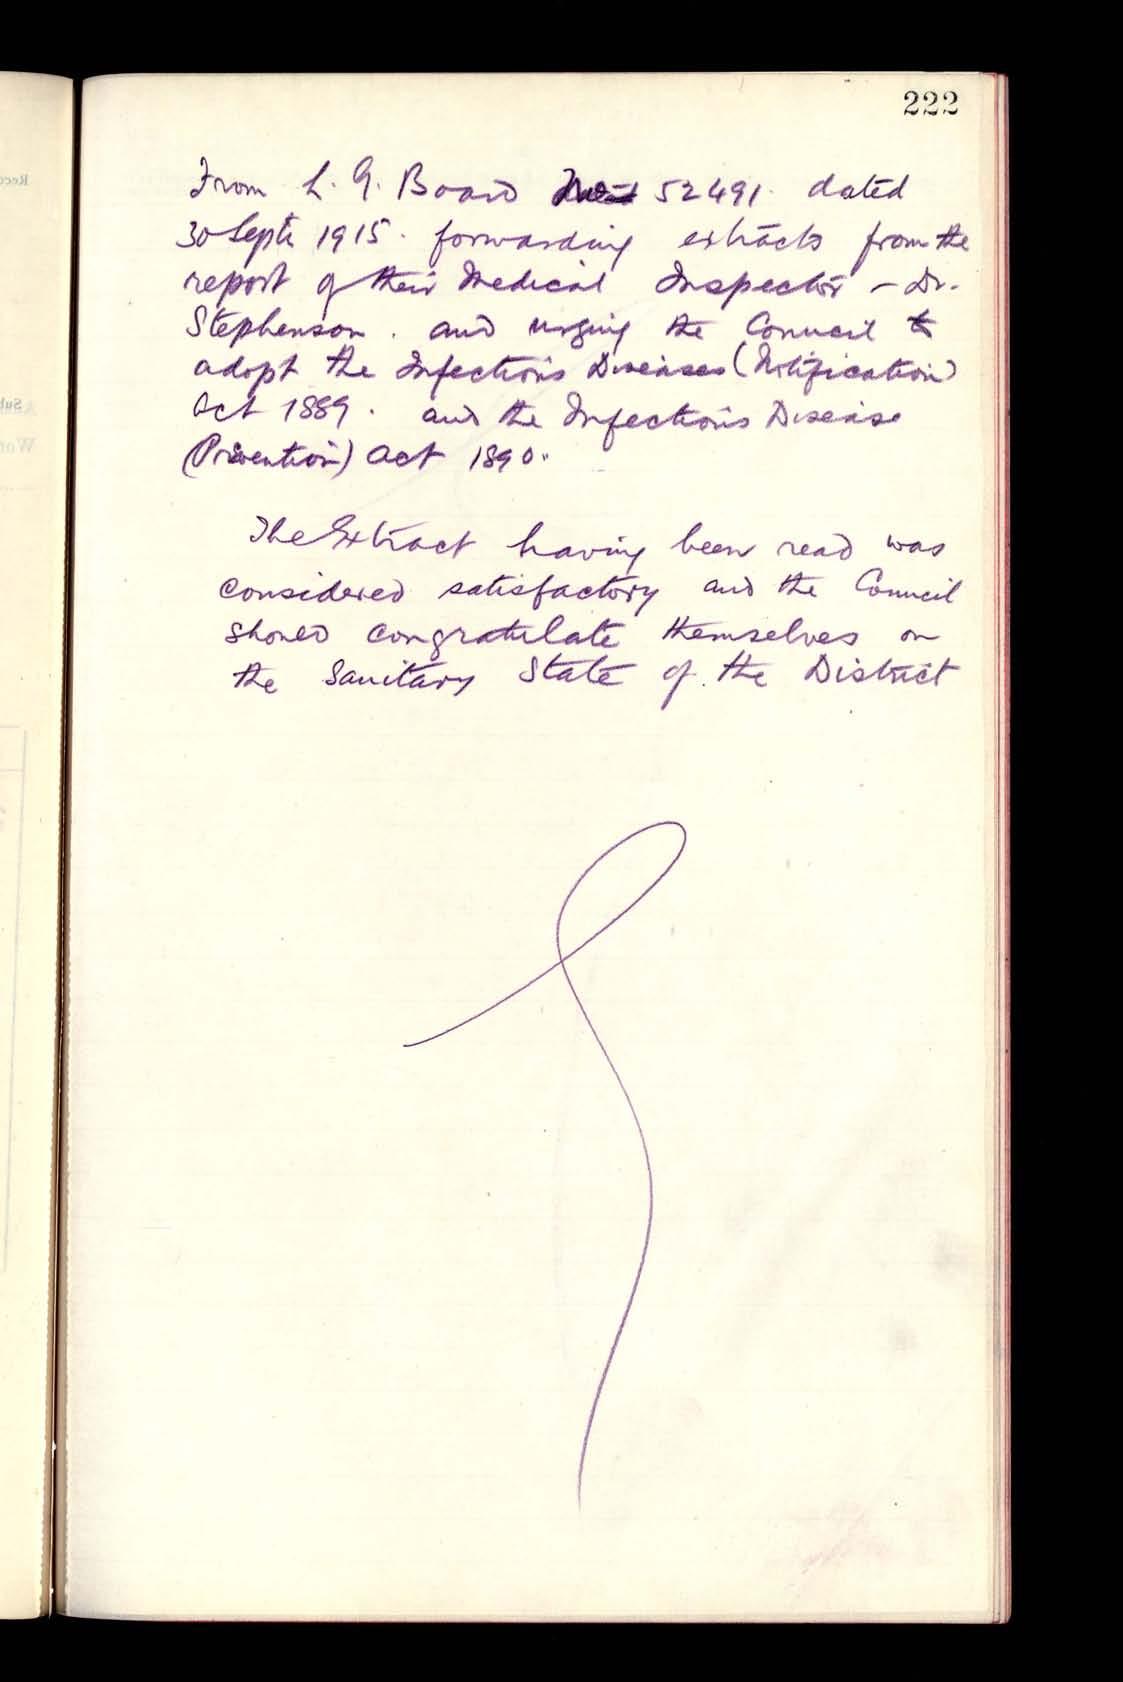 222
From L. G. Board 52491. dated
30 Septr 1915. forwarding extracts from the
report of their Medical Inspector - Dr.
Stephenson. and urging the Council to
adopt the Infectious Diseases (Notification)
Act 1889. and the Infectious Disease
(Prevention) Act 1890.
The Extract having been read was
considered satisfactory and the Council
should congratulate themselves on
the Sanitary State of the District